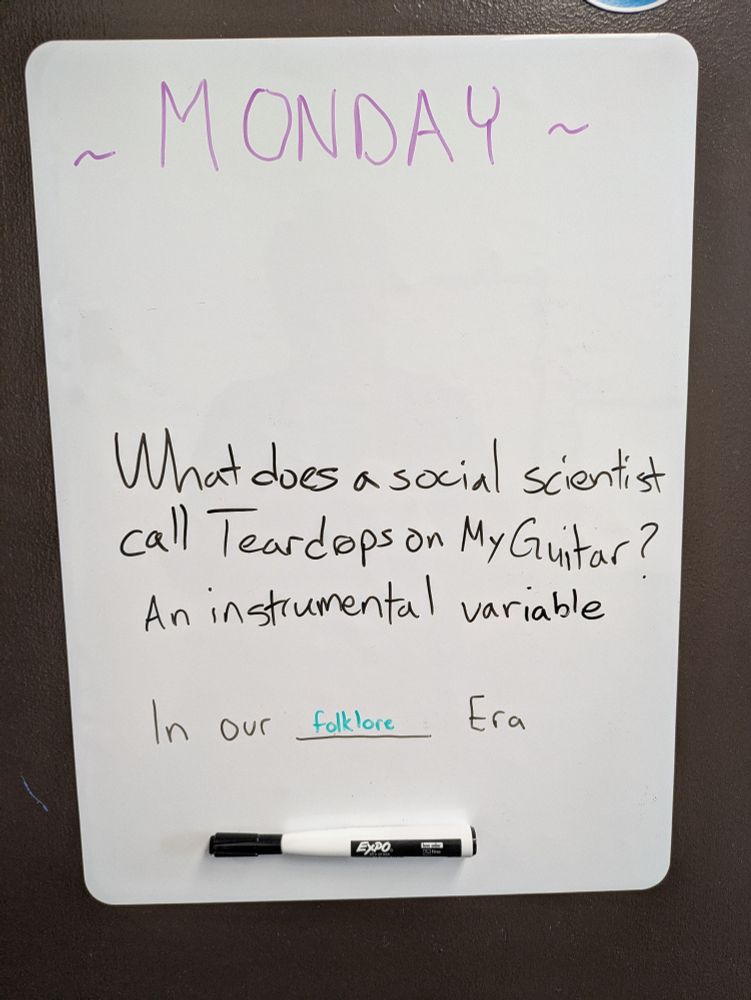 ~ MONDAY ~
What does a social scientist
call Teardops on My Guitar?
An instrumental variable
In our folklore Era
EXPO